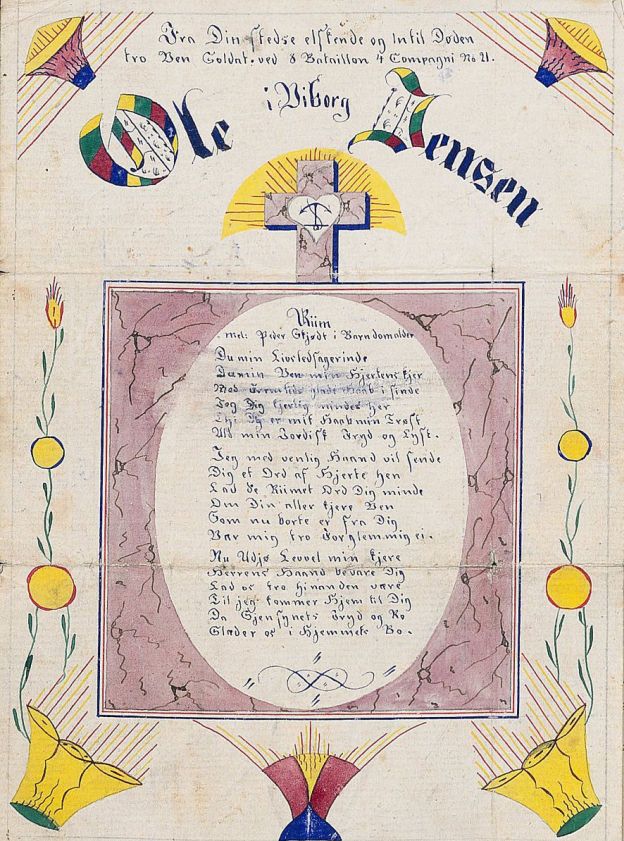 Fra Din stedse elskende og Intil Døden
tro Ven Soldat. ved 8 Bataillon 4 Compagni No 21.
i Viborg
Ole Jensen
Riim
mel: Peder Skjødt i Barndomalder
Du min Livsledsagerinde
Du min Ven min Hjertens kjer
Med Fremtids glade Haab i sinde
Jeg Dig herlig mindes her
Thi Du er mit Haab min Trøst
Ald min Jordisk Fryd og Lyst.
Jeg med venlig Haand vil sende
Dig et Ord af Hjerte hen
Lad de Riimet Ord Dig minde
Om Din aller kjere Ven
Som nu borte er fra Dig
Vær mig tro Forglemmig ei.
Nu Udjø Levvel min kjere
Herrens Haand bevare Dig
Lad os tro hinanden være
Til jeg kommer Hjem til Dig
Da Gjensynets Fryd og Ro
Glæder os i Hjemmets Bo.